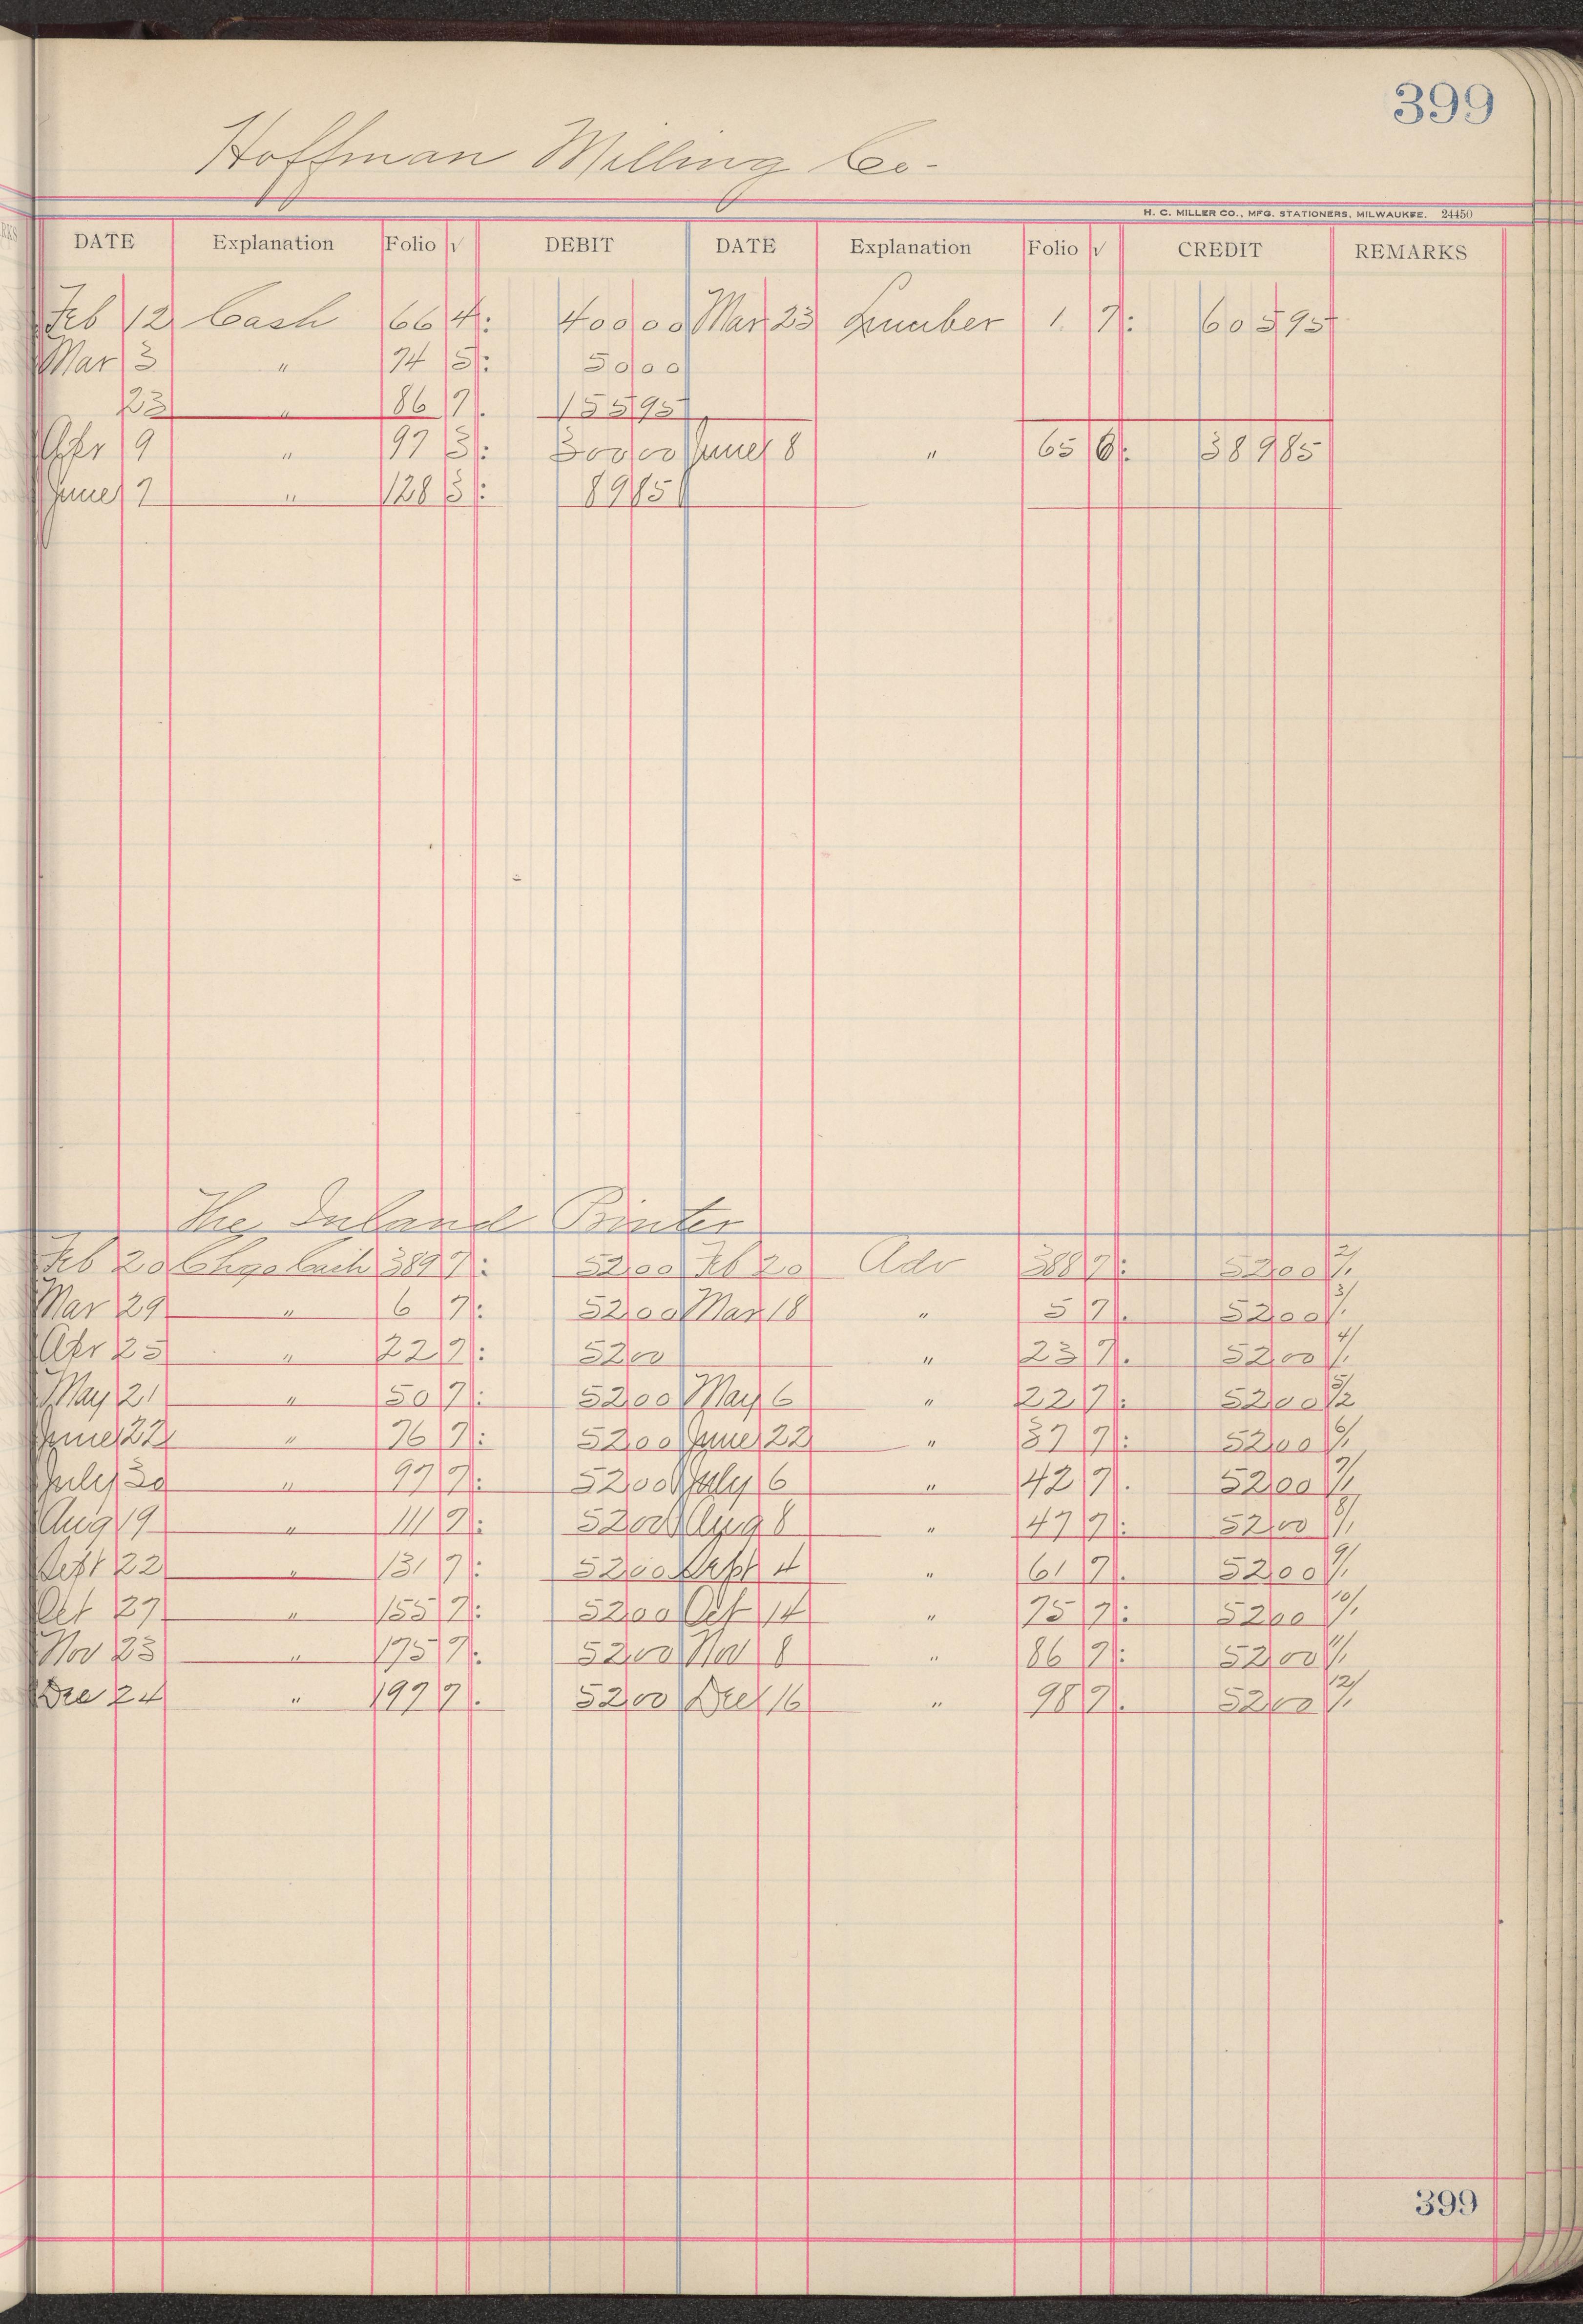 399
Hoffman Milling Co-
H. C. MILLER CO., MFG. STATIONERS, MILWAUKEE. 24450
DATE Explanation Folio √ DEBIT DATE Explanation Folio √ CREDIT REMARKS
Feb 12 Cash 66 4: 400 00 Mar 23 Lumber 1 7: 605 95
Mar 3 " 74 5: 50 00
23 " 86 7. 155 95
Apr 9 " 97 3: 300 00 June 8 " 65 6: 389 85
June 7 " 128 3: 89 85
The Inland Printer
Feb 20 Chgo Cash 389 7: 52 00 Feb 20 Adv 388 7: 52 00 2/1
Mar 29 " 6 7: 52 00 Mar 18 " 5 7. 52 00 3/1
Apr 25 " 22 7: 52 00 " 23 7. 52 00 4/1
May 21 " 50 7: 52 00 May 6 " 22 7: 52 00 5/2
June 22 " 76 7: 52 00 June 22 " 37 7: 52 00 6/1
July 30 " 97 7: 52 00 July 6 " 42 7. 52 00 7/1
Aug 19 " 111 7: 52 00 Aug 8 " 47 7: 52 00 8/1
Sept 22 " 131 7: 52 00 Sept 4 " 61 7. 52 00 9/1
Oct 27 " 155 7: 52 00 Oct 14 " 75 7: 52 00 10/1
Nov 23 " 175 7: 52 00 Nov 8 " 86 7: 52 00 11/1
Dec 24 " 197 7. 52 00 Dec 16 " 98 7. 52 00 12/1
399